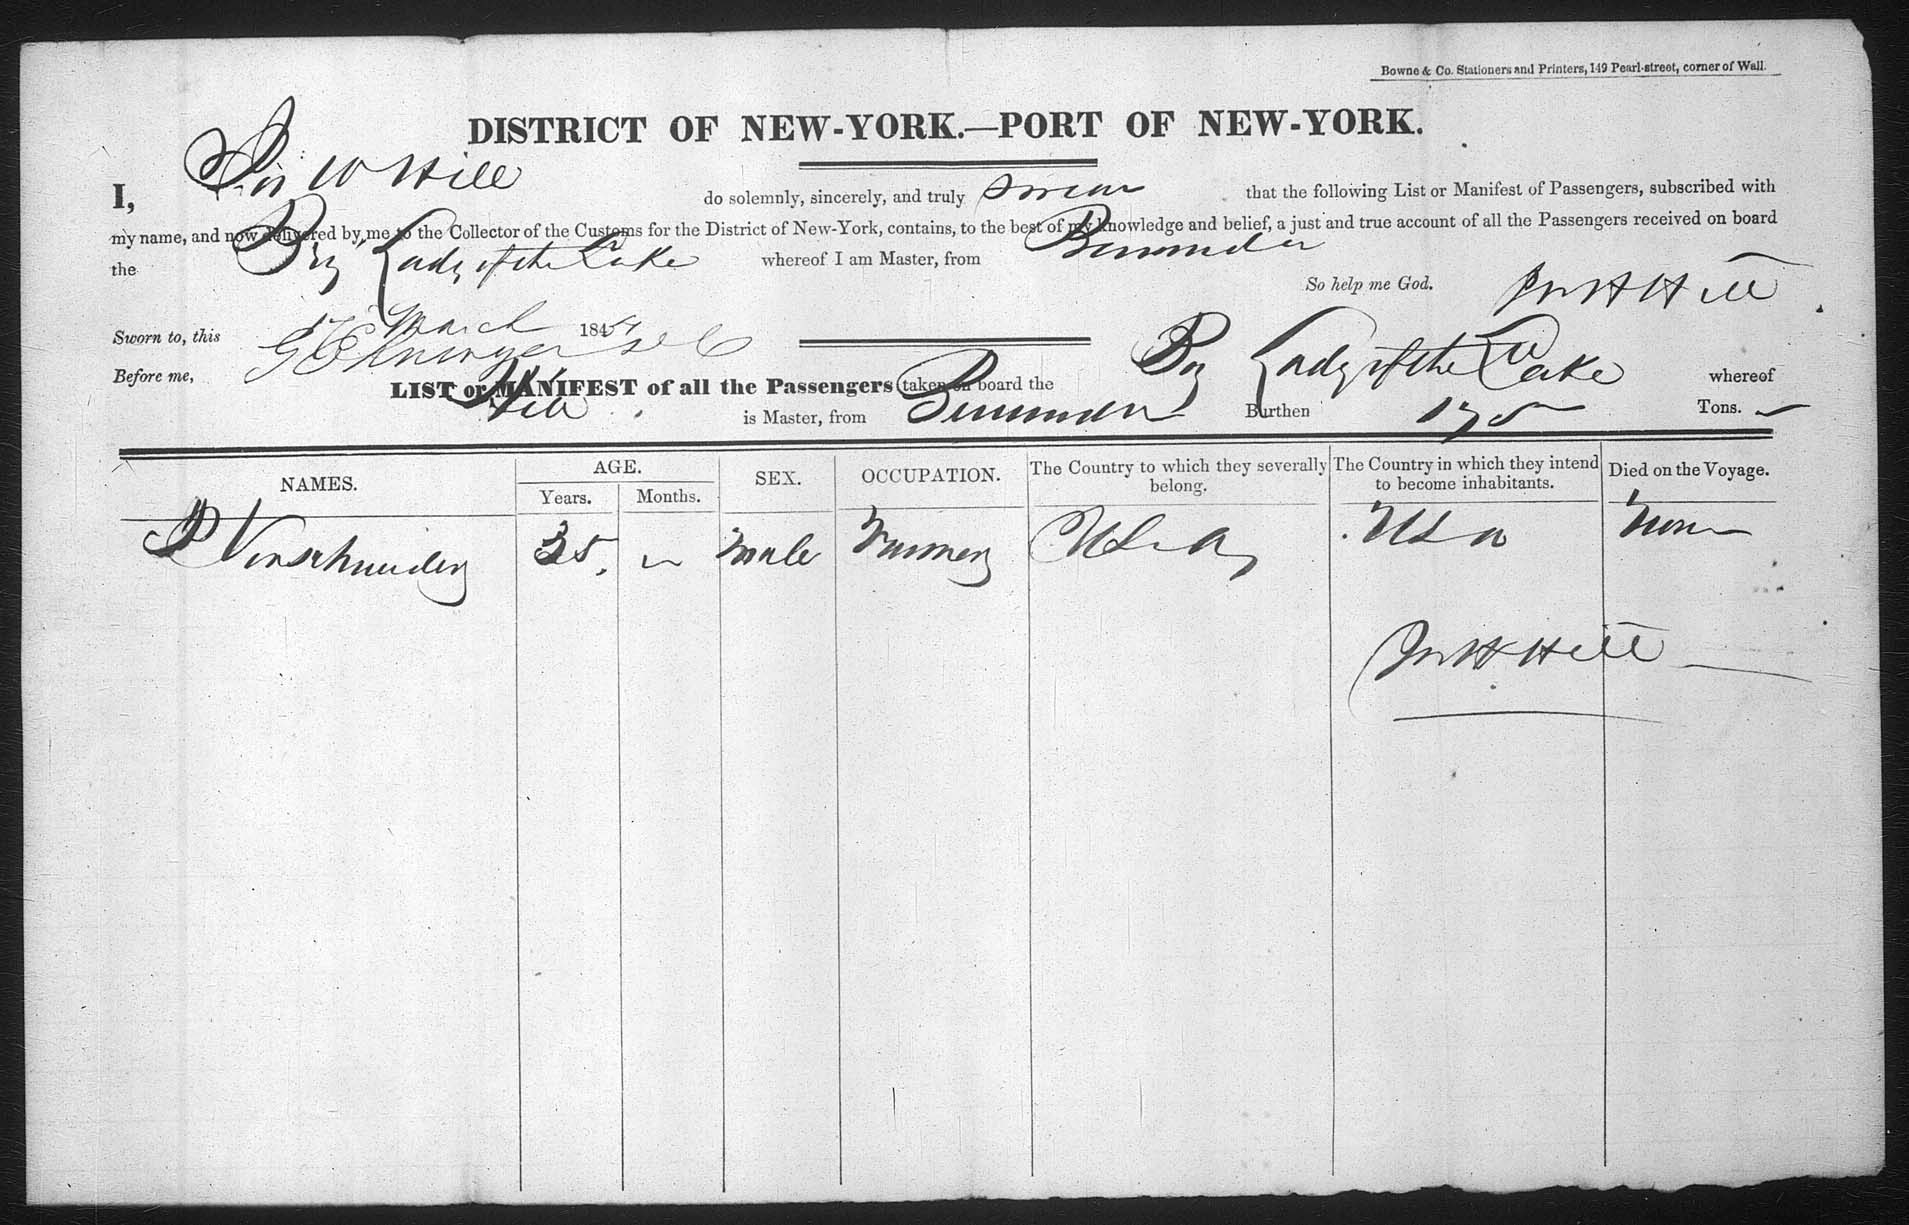 Bowne & Co. Stationers and Printers, 149 Pearl-street, corner of Wall.
DISTRICT OF NEW-YORK.—PORT OF NEW-YORK.
I, W Hill do solemnly, sincerely, and truly swear that the following List or Manifest of Passengers, subscribed with
my name, and now delivered by me to the Collector of the Customs for the District of New-York, contains, to the best of my knowledge and belief, a just and true account of all the Passengers received on board
the Brig Lady of the Lake whereof I am Master, from
So help me God. Hill
Sworn to, this March 184
Before me,
LIST or MANIFEST of all the Passengers taken on board the Brig Lady of the Lake whereof
Hill is Master, from Burthen 175 Tons.
NAMES. AGE. SEX. OCCUPATION. The Country to which they severally belong. The Country in which they intend to become inhabitants. Died on the Voyage.
Years. Months.
P 35 Male U S A U S A None
Hill